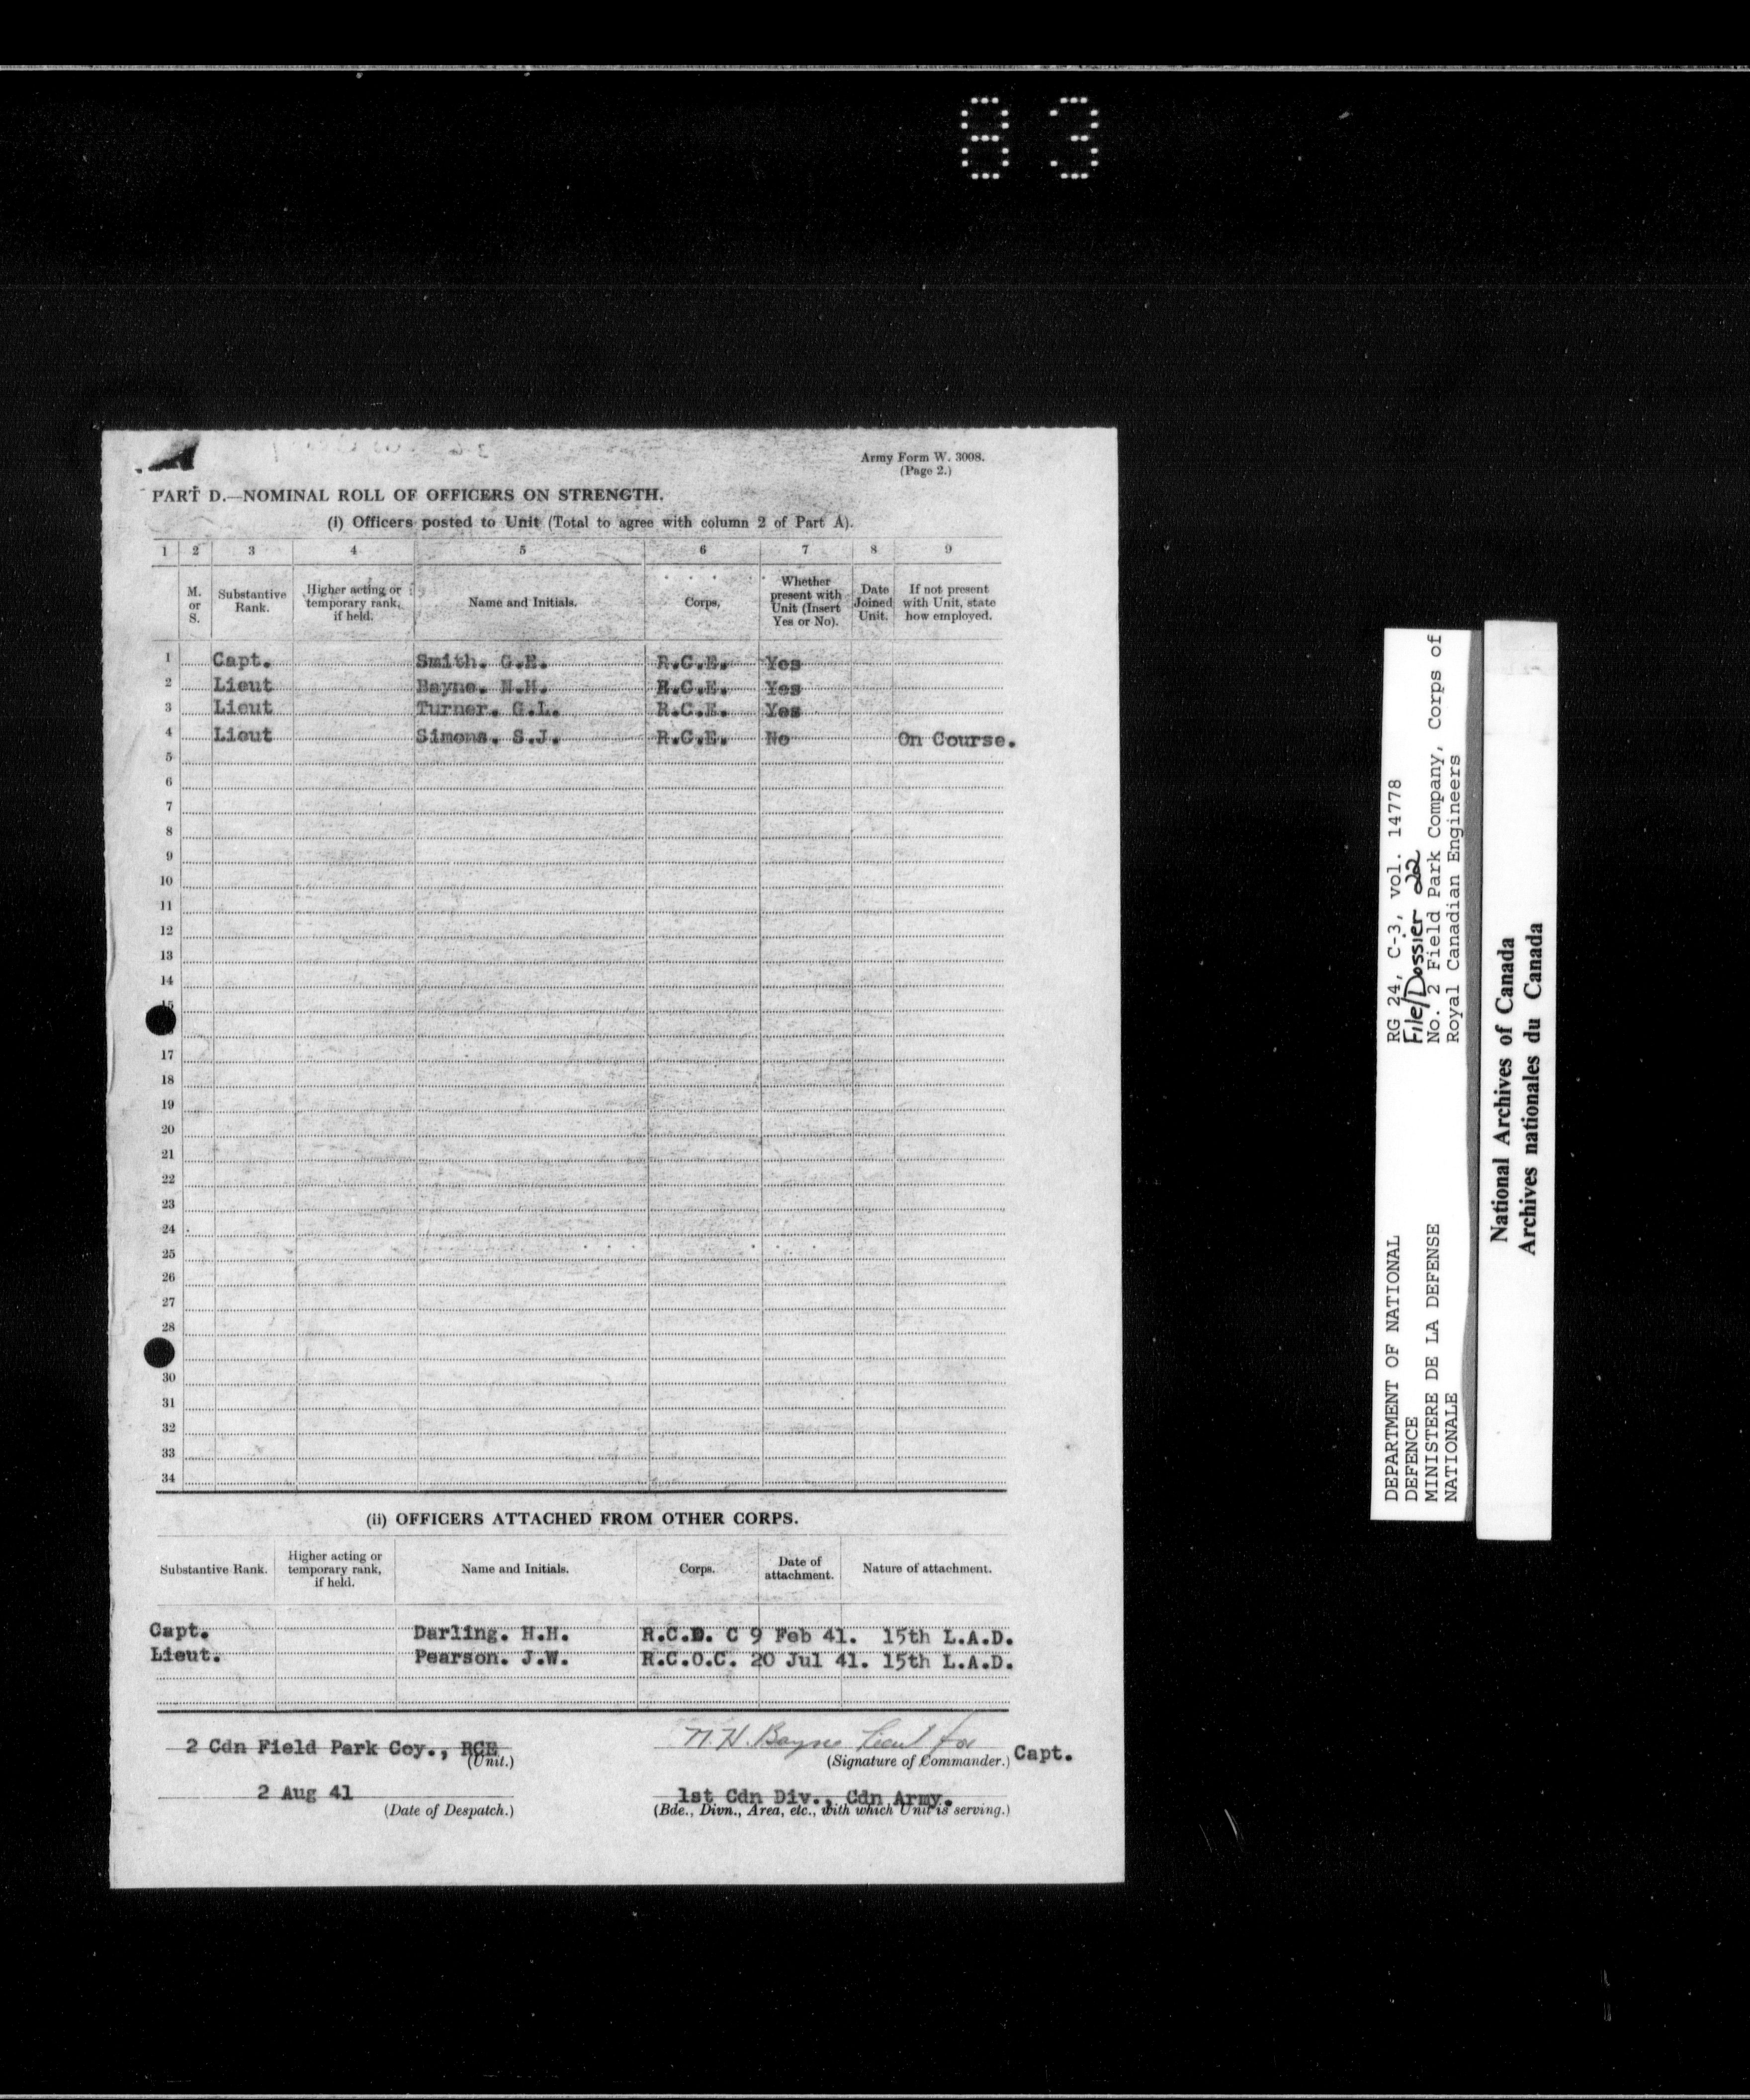 83
Army Form W. 3008.
(Page 2.)
PART D.—NOMINAL ROLL OF OFFICERS ON STRENGTH.
(i) Officers posted to Unit (Total to agree with column 2 of Part A).
1 2 3 4 5 6 7 8 9
M. or S. Substantive Rank. Higher acting or temporary rank, if held. Name and Initials. Corps. Whether present with Unit (Insert Yes or No). Date Joined Unit. If not present with Unit, state how employed.
1 Capt. Smith. G.E. R.C.E. Yes
2 Lieut Bayne. N.H. R.C.E. Yes
3 Lieut Turner. G.L. R.C.E. Yes
4 Lieut Simons. S.J. R.C.E. No On Course.
5
6
7
8
9
10
11
12
13
14
15
17
18
19
20
21
22
23
24
25
26
27
28
30
31
32
33
34
(ii) OFFICERS ATTACHED FROM OTHER CORPS.
Substantive Rank. Higher acting or temporary rank, if held. Name and Initials. Corps. Date of attachment. Nature of attachment.
Capt. Darling. H.H. R.C.D. C 9 Feb 41. 15th L.A.D.
Lieut. Pearson. J.W. R.C.O.C. 20 Jul 41. 15th L.A.D.
2 Cdn Field Park Coy., RCE
(Unit.)
N.H. Bayne Lieut for Capt.
(Signature of Commander.)
2 Aug 41
(Date of Despatch.)
1st Cdn Div., Cdn Army.
(Bde., Divn., Area, etc., with which Unit is serving.)
DEPARTMENT OF NATIONAL
DEFENCE
MINISTERE DE LA DEFENSE
NATIONALE
RG 24, C-3, vol. 14778
File/Dossier 22
No. 2 Field Park Company, Corps of
Royal Canadian Engineers
National Archives of Canada
Archives nationales du Canada